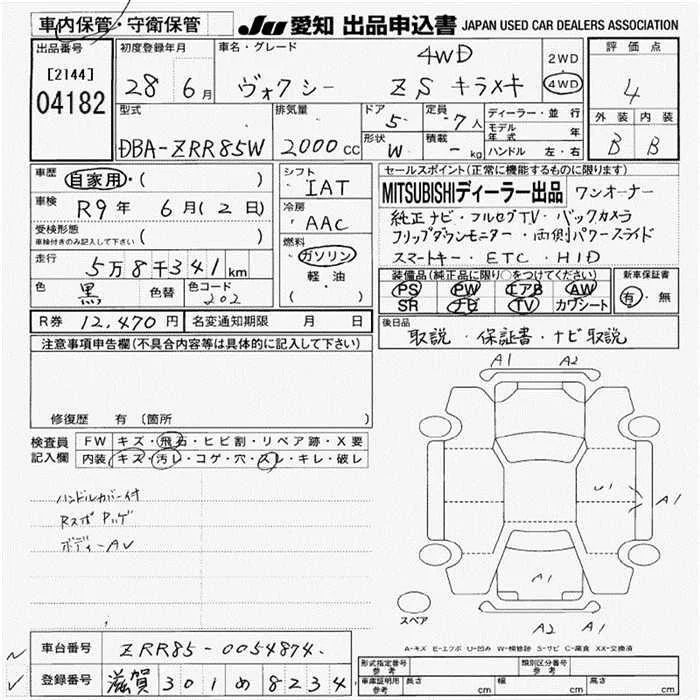 車内保管・守衛保管
JU 愛知 出品申込書 JAPAN USED CAR DEALERS ASSOCIATION
出品番号
[2144]
04182
初度登録年月
28 年 6 月
車名・グレード
4WD
ヴォクシー ZS キラメキ
2WD
4WD
評価点
4
外装 内装
B B
型式
DBA-ZRR85W
排気量
2000 CC
ドア
5
形状
W
定員
-7人
積載
- kg
ディーラー・並行
モデル年式 年
ハンドル 左・右
車歴
自家用・( )
車検
R9年 6月(2日)
受検形態
車検付きのみ記入して下さい ( )
走行
5万8千341km
色
黒
色替
色コード
202
シフト
IAT
冷房
AAC
燃料
ガソリン
軽・油
( )
セールスポイント(正常に機能するものに限ります)
MITSUBISHIディーラー出品 ワンオーナー
純正ナビ・フルセグTV・バックカメラ
フリップダウンモニター・両側パワースライド
スマートキー・ETC・HID
装備品(純正品に限り○をつけてください)
PS PW エアB AW
SR ナビ TV カワシート
新車保証書
有・無
R券 12,470円
名変通知期限 月 日
後日品
取説・保証書・ナビ取説
注意事項申告欄(不具合内容等は具体的に記入して下さい)
修復歴 有 〔箇所
検査員記入欄
FW キズ・飛石・ヒビ割・リペア跡・X要
内装 キズ・汚レ・コゲ・穴・スレ・キレ・破レ
ハンドルカバー付
Rスポ Pハゲ
ボディーAU
A1 A2
U1
A1
A1
A2 A1
スペア
A-キズ E-エクボ U-凹み W-補修跡 S-サビ C-腐食 XX-交換済
車台番号 ZRR85-0054874
登録番号 滋賀 301 め 8234
形式指定番号 参考
類別区分番号 参考
車庫証明用 参考
長さ cm
幅 cm
高さ cm